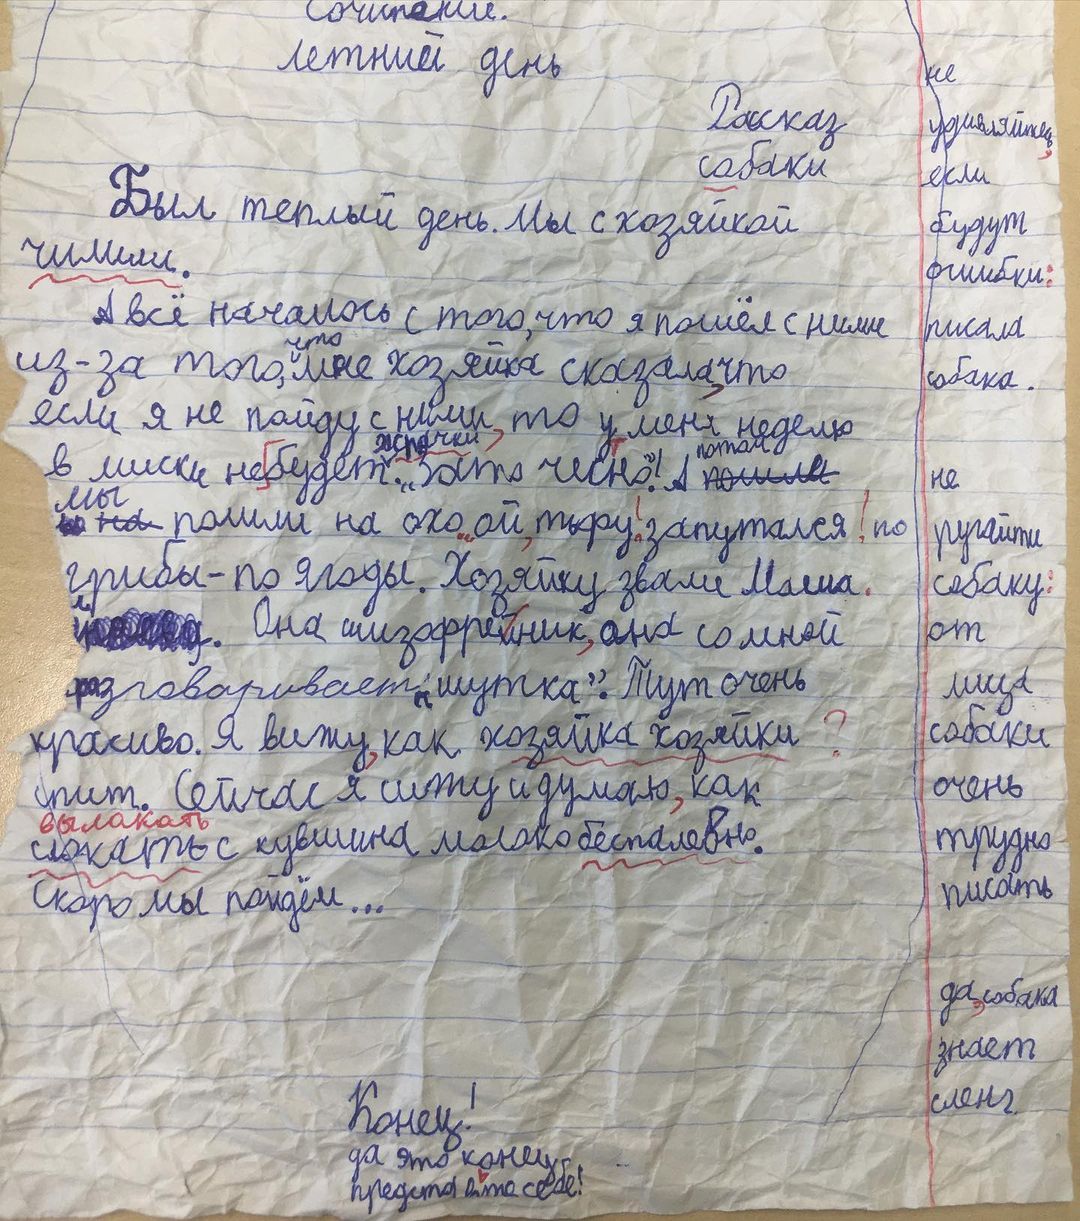 Сочинение.
Летний день
Рассказ
собаки
Был теплый день. Мы с хозяйкой
чилили.
А всё началось с того, что я пошёл с ними
из-за того, что мне хозяйка сказала, что
если я не пойду с ними, то у меня неделю
в миски небудет жрачки. "Зато чесно"! А потом
мы пошли на охо..ой, тьфу! запутался! по
грибы - по ягоды. Хозяйку звали Маша.
Она шизофрейник, она со мной
разговаривает "шутка". Тут очень
красиво. Я вижу, как хозяйка хозяйки ?
спит. Сейчас я сижу и думаю, как
вылакать
локать с кувшина молоко беспалевно.
Скоро мы пойдём...
Конец!
да это конец
представте себе!
не
удивляйтесь,
если
будут
ошибки:
писала
собака.
не
ругайти
собаку:
от
лица
собаки
очень
трудно
писать
да, собака
знает
сленг.